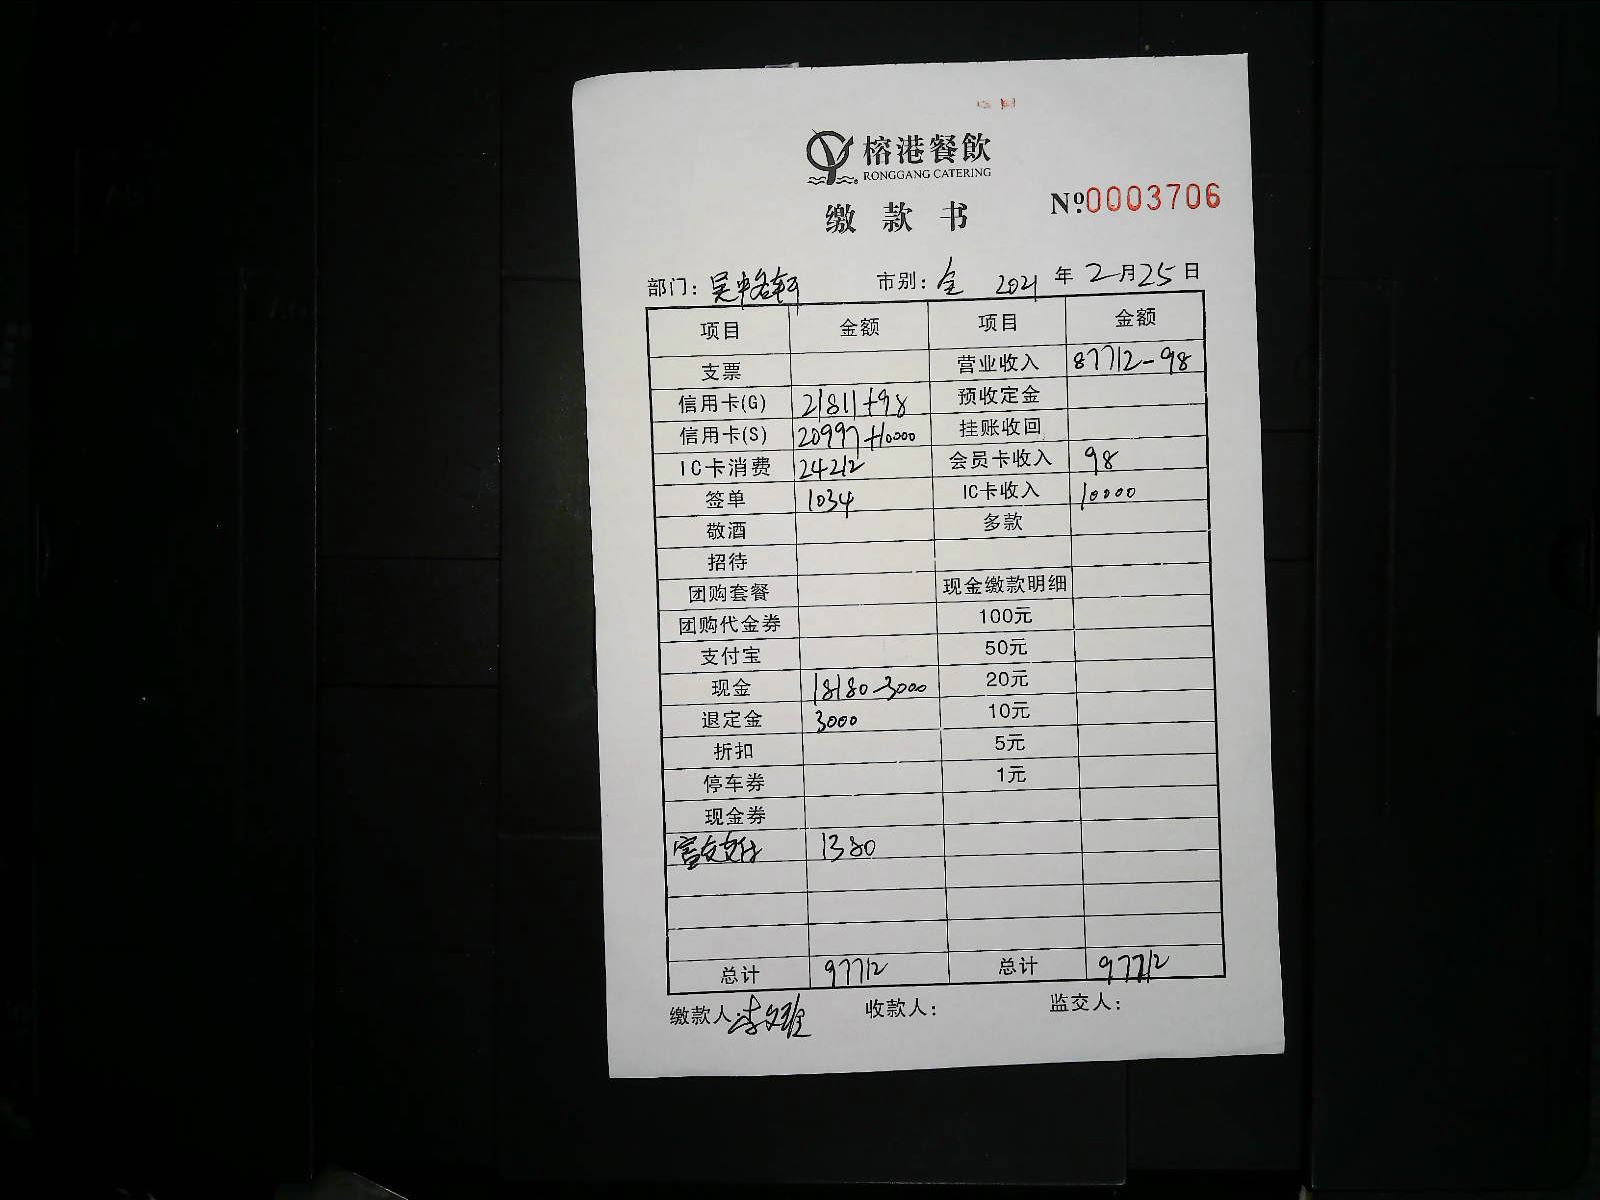 榕港餐飲
RONGGANG CATERING
缴款书 Nº:0003706
部门: 吴中路轩 市别: 全 2021 年 2 月 25 日
项目 金额 项目 金额
支票 营业收入 87712-98
信用卡(G) 21811+98 预收定金
信用卡(S) 20997+10000 挂账收回
IC卡消费 24212 会员卡收入 98
签单 1034 IC卡收入 10000
敬酒 多款
招待
团购套餐 现金缴款明细
团购代金券 100元
支付宝 50元
现金 18180-3000 20元
退定金 3000 10元
折扣 5元
停车券 1元
现金券
支付 1380
总计 97712 总计 97712
缴款人: 李 收款人: 监交人: